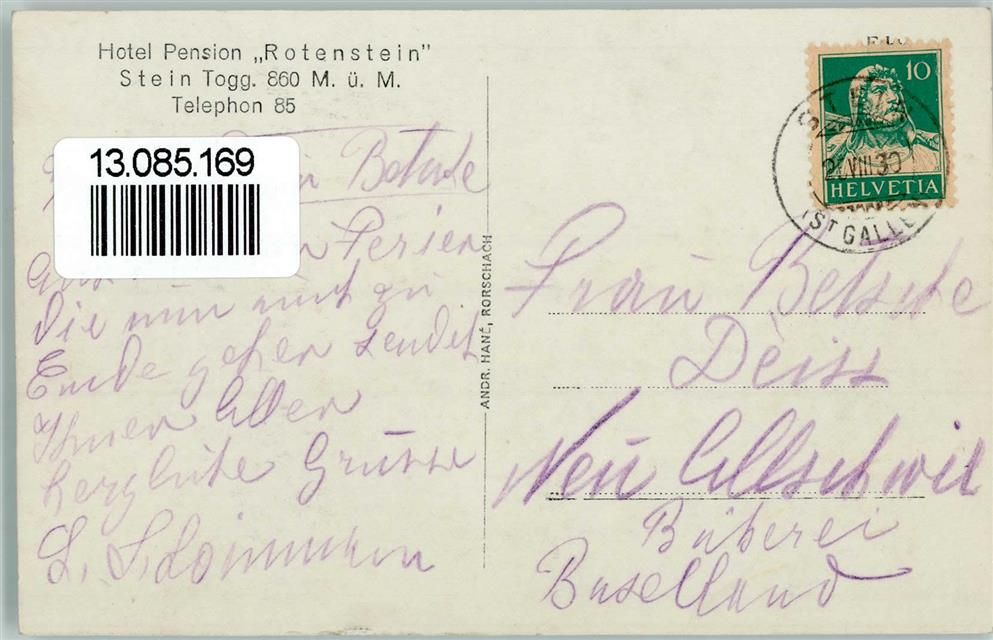 Hotel Pension „Rotenstein"
Stein Togg. 860 M. ü. M.
Telephon 85
13.085.169
Betsche
Ferien
die nun auch zu
Ende gehen sendet
Ihnen Allen
herzliche Grüsse
L.
ANDR. HANÉ, RORSCHACH
10
HELVETIA
STEIN
VIII 30
(ST GALLEN)
Frau Betsche
Deiss
Neu Allschwil
Bäkerei
Baselland